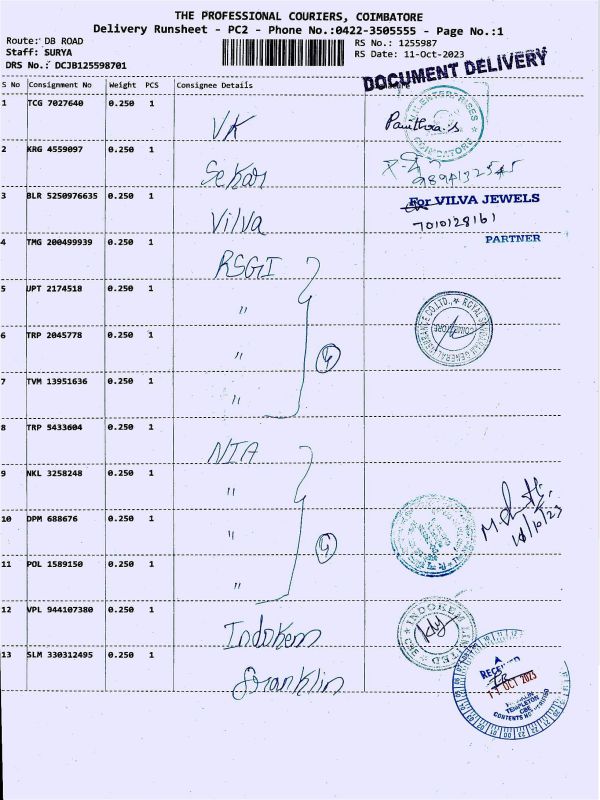 THE PROFESSIONAL COURIERS, COIMBATORE
Delivery Runsheet - PC2 - Phone No.:0422-3505555 - Page No.:1
Route: DB ROAD
RS No.: 1255987
Staff: SURYA
RS Date: 11-Oct-2023
DRS No.: DCJB125598701
DOCUMENT DELIVERY
S No Consignment No Weight PCS Consignee Details
1 TCG 7027640 0.250 1 VK
COIMBATORE
2 KRG 4559097 0.250 1 Sekar
9894132545
3 BLR 5250976635 0.250 1 Vilva
For VILVA JEWELS
7010128161
PARTNER
4 TMG 200499939 0.250 1 RSGI
5 UPT 2174518 0.250 1 "
6 TRP 2045778 0.250 1 "
4
7 TVM 13951636 0.250 1 "
8 TRP 5433604 0.250 1 NIA
9 NKL 3258248 0.250 1 "
10 DPM 688676 0.250 1 "
11 POL 1589150 0.250 1 "
12 VPL 944107380 0.250 1 Indokem
INDOKEM LIMITED
13 SLM 330312495 0.250 1 Franklin
RECEIVED
11 OCT 2023
TEMPLETON
CBE
CONTENTS NOT VERIFIED